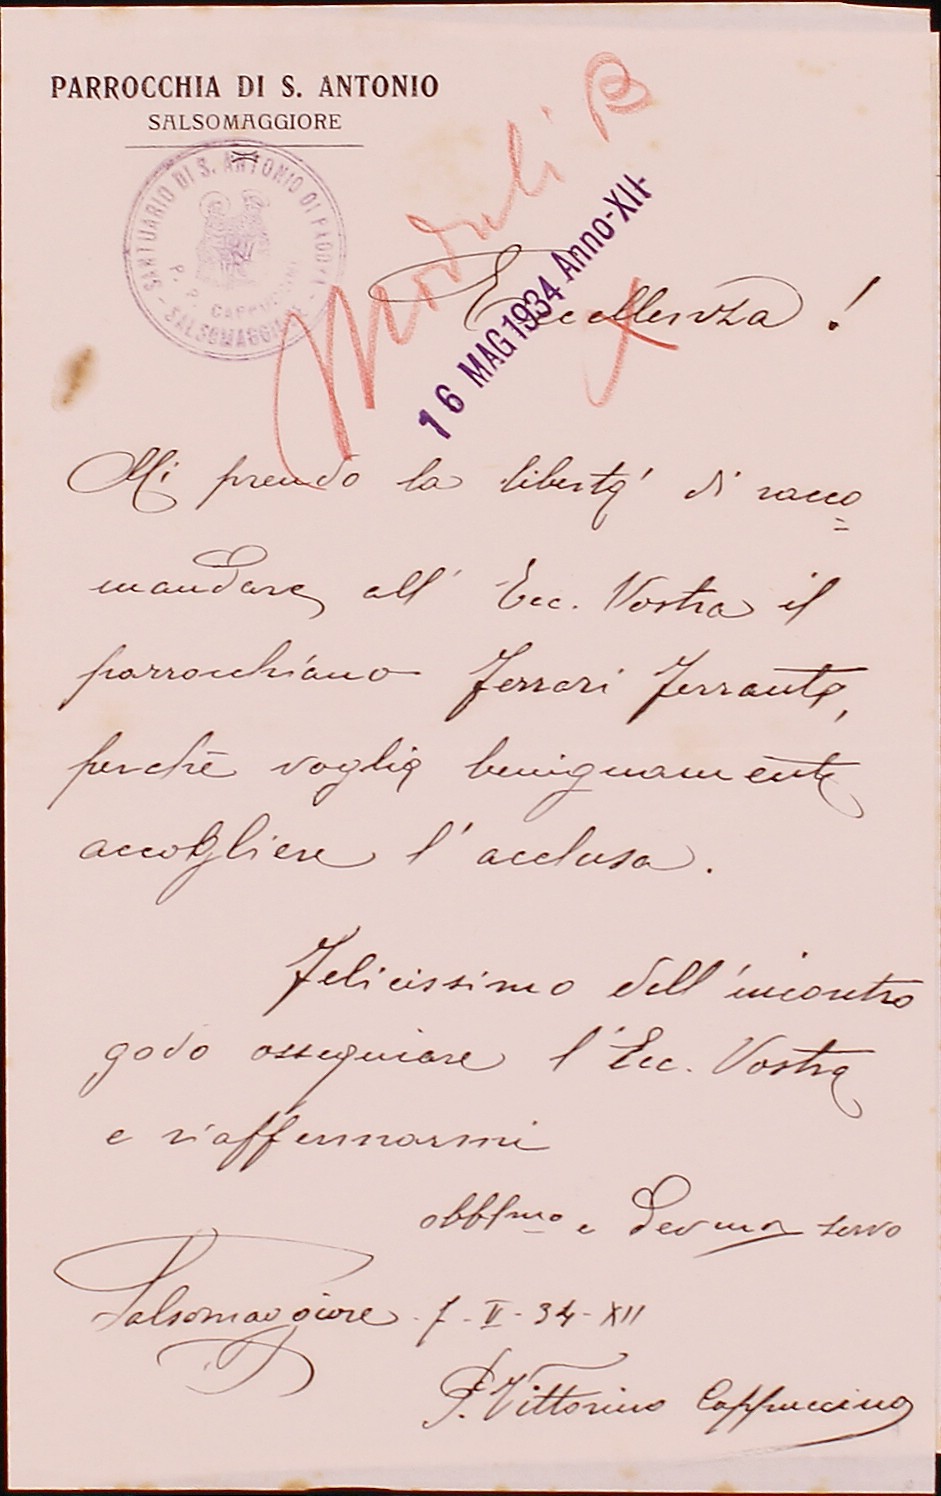 PARROCCHIA DI S. ANTONIO
SALSOMAGGIORE
SANTUARIO DI S. ANTONIO DI PADOVA
P. P. CAPPUCCINI
- SALSOMAGGIORE -
Moduli B
16 MAG 1934 Anno-XII
Eccellenza !
Mi prendo la libertà di racco=
mandare all' Ecc. Vostra il
parrocchiano Ferrari Ferrante,
perchè voglia benignamente
accogliere l'acclusa.
Felicissimo dell'incontro
godo ossequiare l'Ecc. Vostra
e riaffermarmi
obblmo e devmo servo
Salsomaggiore. 7-V-34-XII
P. Vittorino Cappuccino